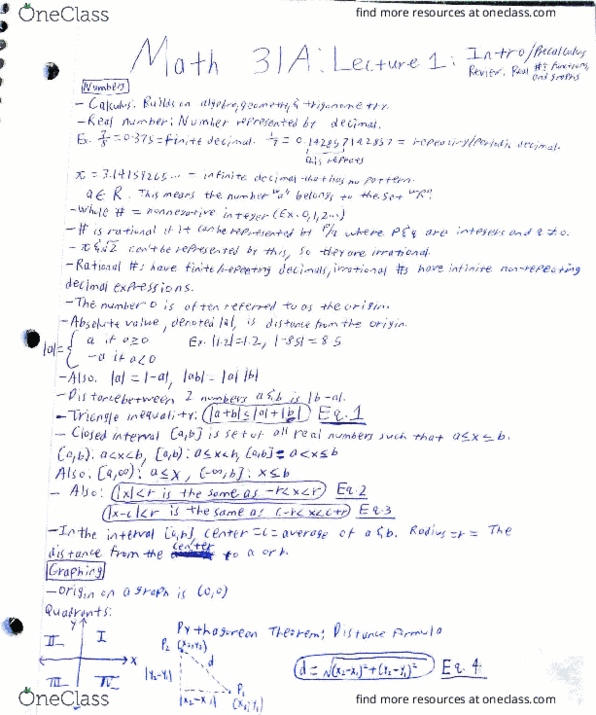 OneClass
find more resources at oneclass.com
Math 31A: Lecture 1: Intro/Precalculus
Review, Real #s, Functions, and Graphs
Numbers
- Calculus: Builds on algebra, geometry, & trigonometry.
- Real number: Number represented by decimal.
Ex. 3/8 = 0.375 = finite decimal. 1/7 = 0.142857142857 = repeating/periodic decimal.
this repeats
π = 3.14159265... = infinite decimal that has no pattern.
a ∈ R. This means the number "a" belongs to the set "R".
- Whole # = nonnegative integer (Ex. 0, 1, 2...)
- # is rational if it can be represented by P/q where P & q are integers and q ≠ 0.
- π & √2 can't be represented by this, so they are irrational.
- Rational #s have finite/repeating decimals, irrational #s have infinite non-repeating
decimal expressions.
- The number 0 is often referred to as the origin.
- Absolute value, denoted |a|, is distance from the origin.
|a| = { a if a ≥ 0 Ex. |1.2| = 1.2, |-85| = 85
-a if a < 0
- Also: |a| = |-a|, |ab| = |a| |b|
- Distance between 2 numbers a & b is |b-a|.
- Triangle inequality: |a+b| ≤ |a| + |b| Eq. 1
- Closed interval [a,b] is set of all real numbers such that a ≤ x ≤ b.
(a,b): a<x<b, [a,b): a≤x<b, (a,b] = a<x≤b
Also: [a,∞): a≤x, (-∞,b]: x≤b
- Also: |x|<r is the same as -r<x<r Eq. 2
|x-c|<r is the same as c-r<x<c+r Eq. 3
- In the interval [a,b], center = c = average of a & b. Radius = r = The
distance from the center to a or b.
Graphing
- Origin on a graph is (0,0)
Quadrants:
Pythagorean Theorem: Distance Formula
y
II
I
x
III
IV
P₂ (x₂,y₂)
d
|y₂-y₁|
|x₂-x₁|
P₁ (x₁,y₁)
d = √(x₂-x₁)²+(y₂-y₁)² Eq. 4
OneClass
find more resources at oneclass.com